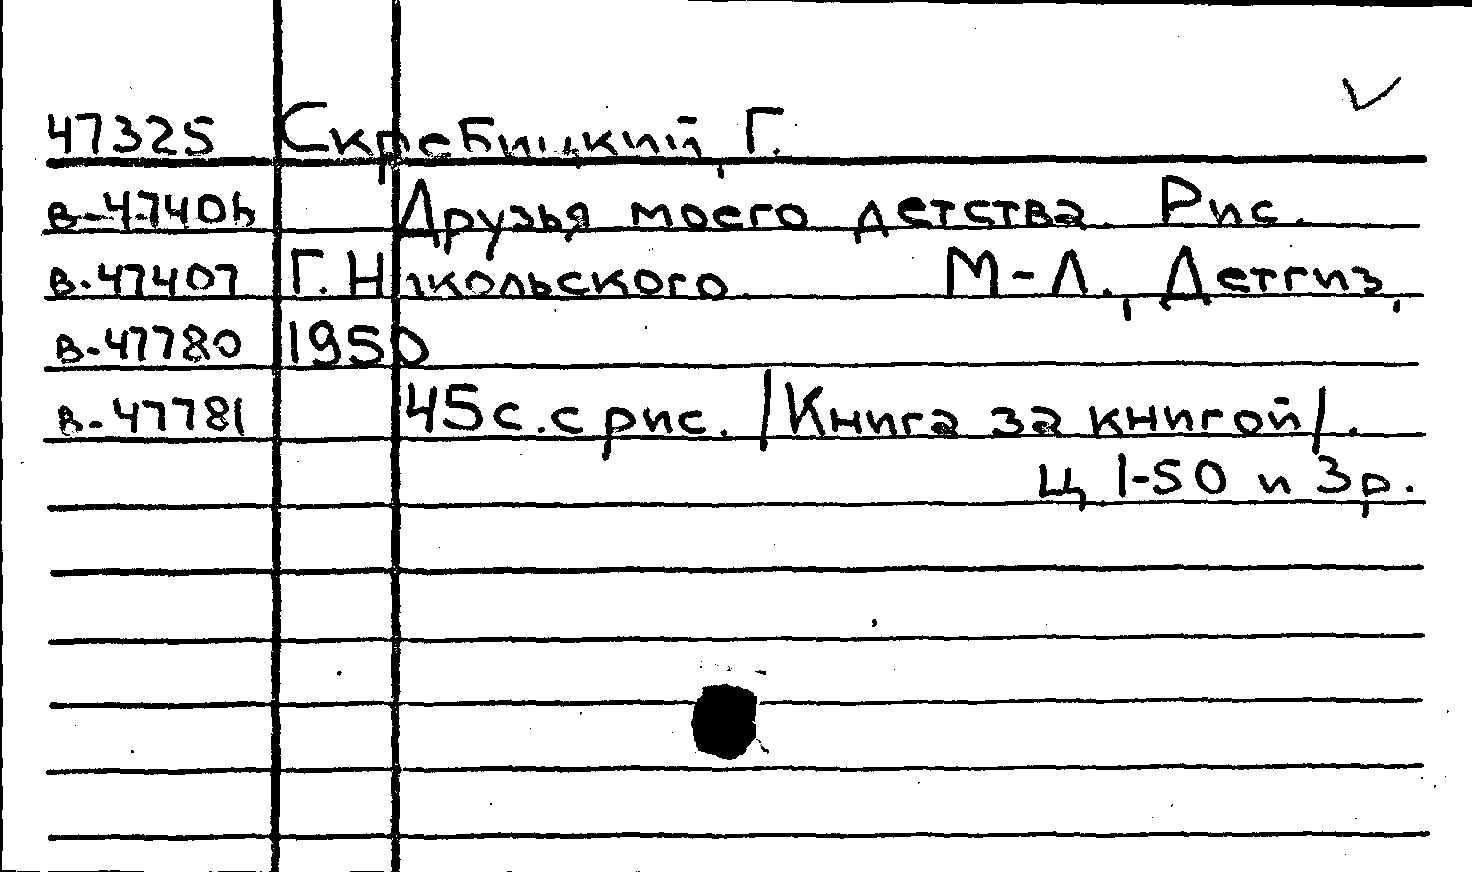 47325 Скребицкий, Г.
в-47406 Друзья моего детства. Рис.
в-47407 Г. Никольского. М-Л., Детгиз,
в-47780 1950
в-47781 45 с. с рис. /Книга за книгой/.
Ц. 1-50 и 3р.